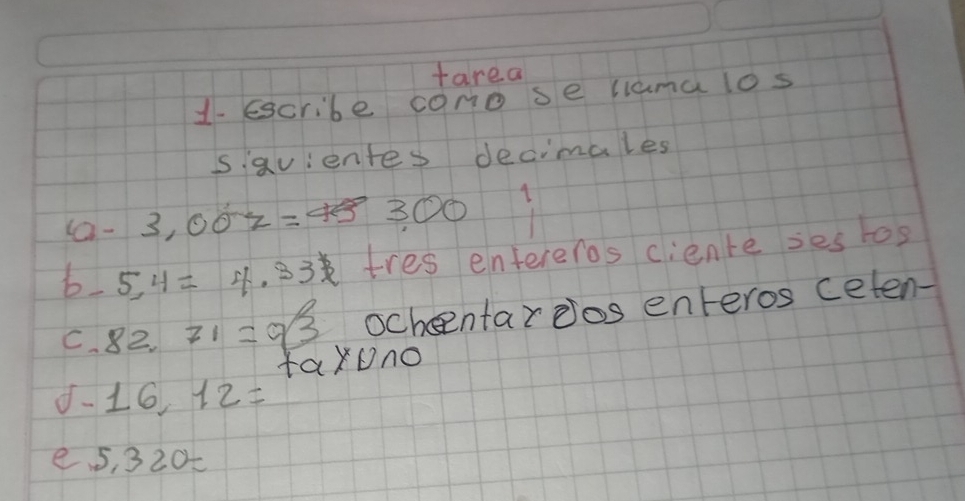 tarea
1- Escribe como se llama los
siguientes decimales
a- 3,002= 3,00
b- 5,4= 4.33 tres entereros ciente sestos
c. 82, 71= ochentaydos enteros ceten-
tayuno
d- 16, 12=
e. 5,320=